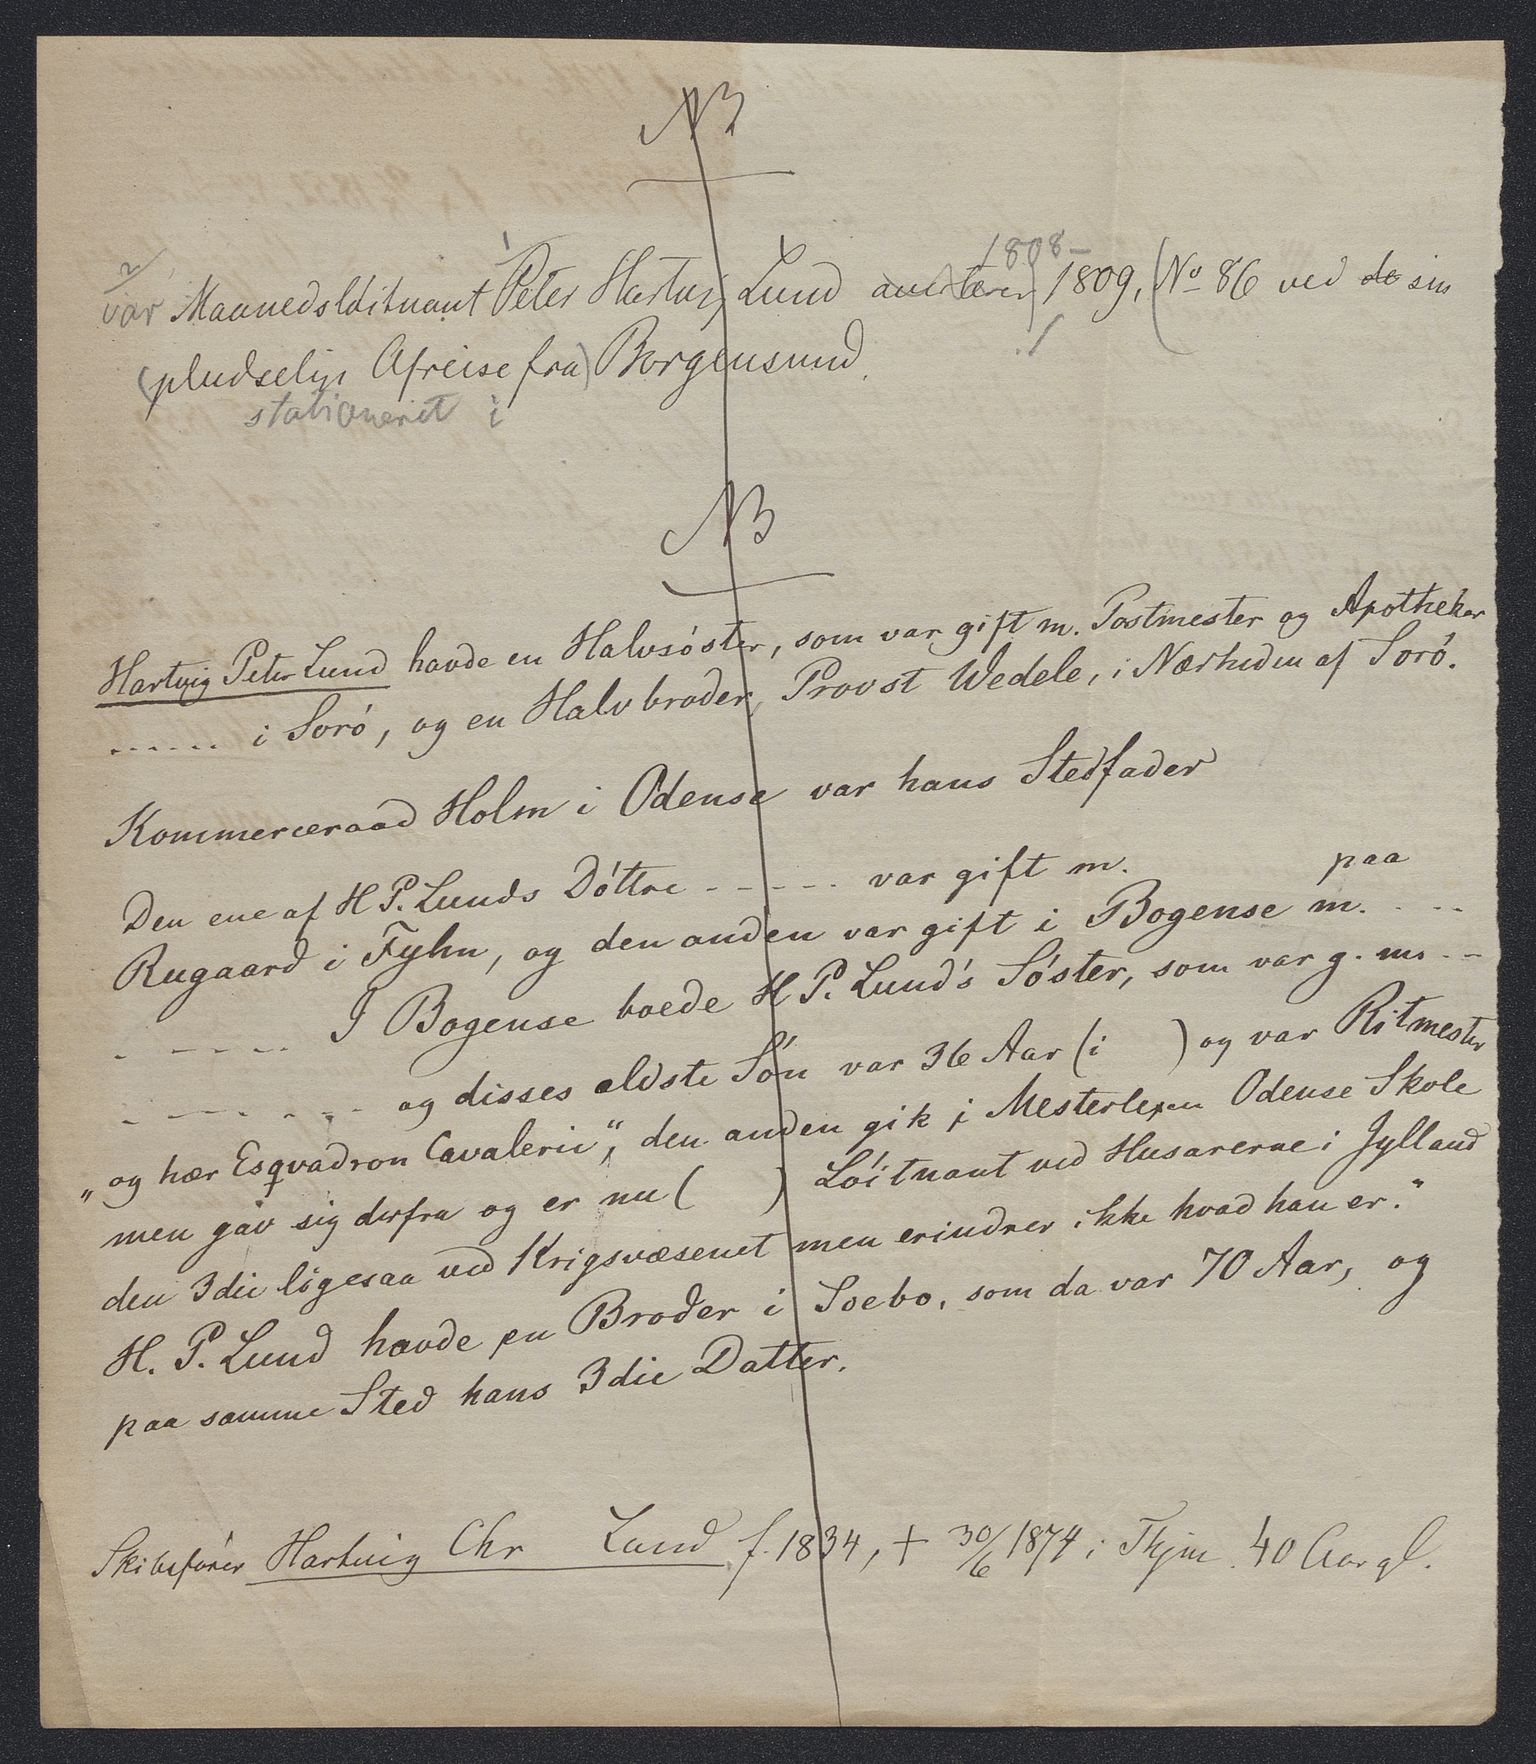 NB
1808-
var Maanedslöitnant Peter Hartvig Lund 1809, (No 86 ved de sin
(pludselig Afreise fra) Borgensund.
stationeret i
NB
Hartvig Peter Lund havde en Halvsöster, som var gift m. Postmester og Apotheker
...... i Sorö, og en Halvbroder, Provst Wedele, i Nærheden af Sorö.
Kommerceraad Holm i Odense var hans Stedfader
Den ene af H P. Lunds Döttre ------ var gift m. paa
Rugaard i Fyhn, og den anden var gift i Bogense m. ...
- ----- I Bogense boede H P. Lund's Söster, som var g. m. --
- ------ og disses ældste Sön var 36 Aar (i ) og var Ritmester
„og hær Esqvadron Cavaleri", den anden gik i Mesterlexen Odense Skole
men gav sig derfra og er nu ( ) Löitnant ved Husarerne i Jylland
den 3die ligesaa ved Krigsvæsenet men erindrer ikke hvad han er."
H. P. Lund havde en Broder i Soebo, som da var 70 Aar, og
paa samme Sted hans 3die Datter.
Skibsförer Hartvig Chr Lund f. 1834, + 30/6 1874 i Thjm. 40 Aar gl.